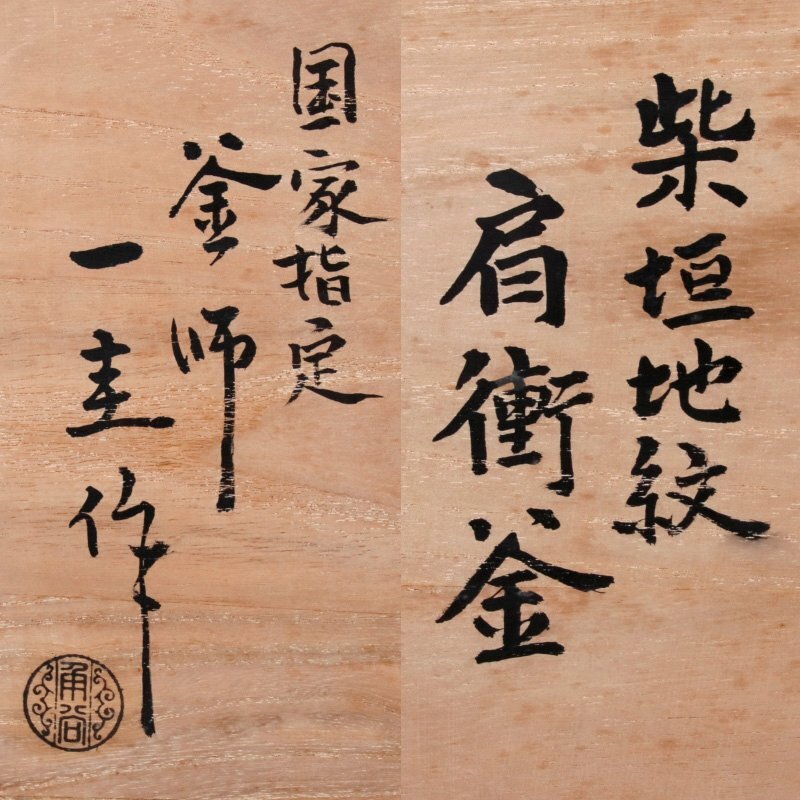 柴垣地紋
肩衝釜
国家指定
釜師
一圭作
角谷